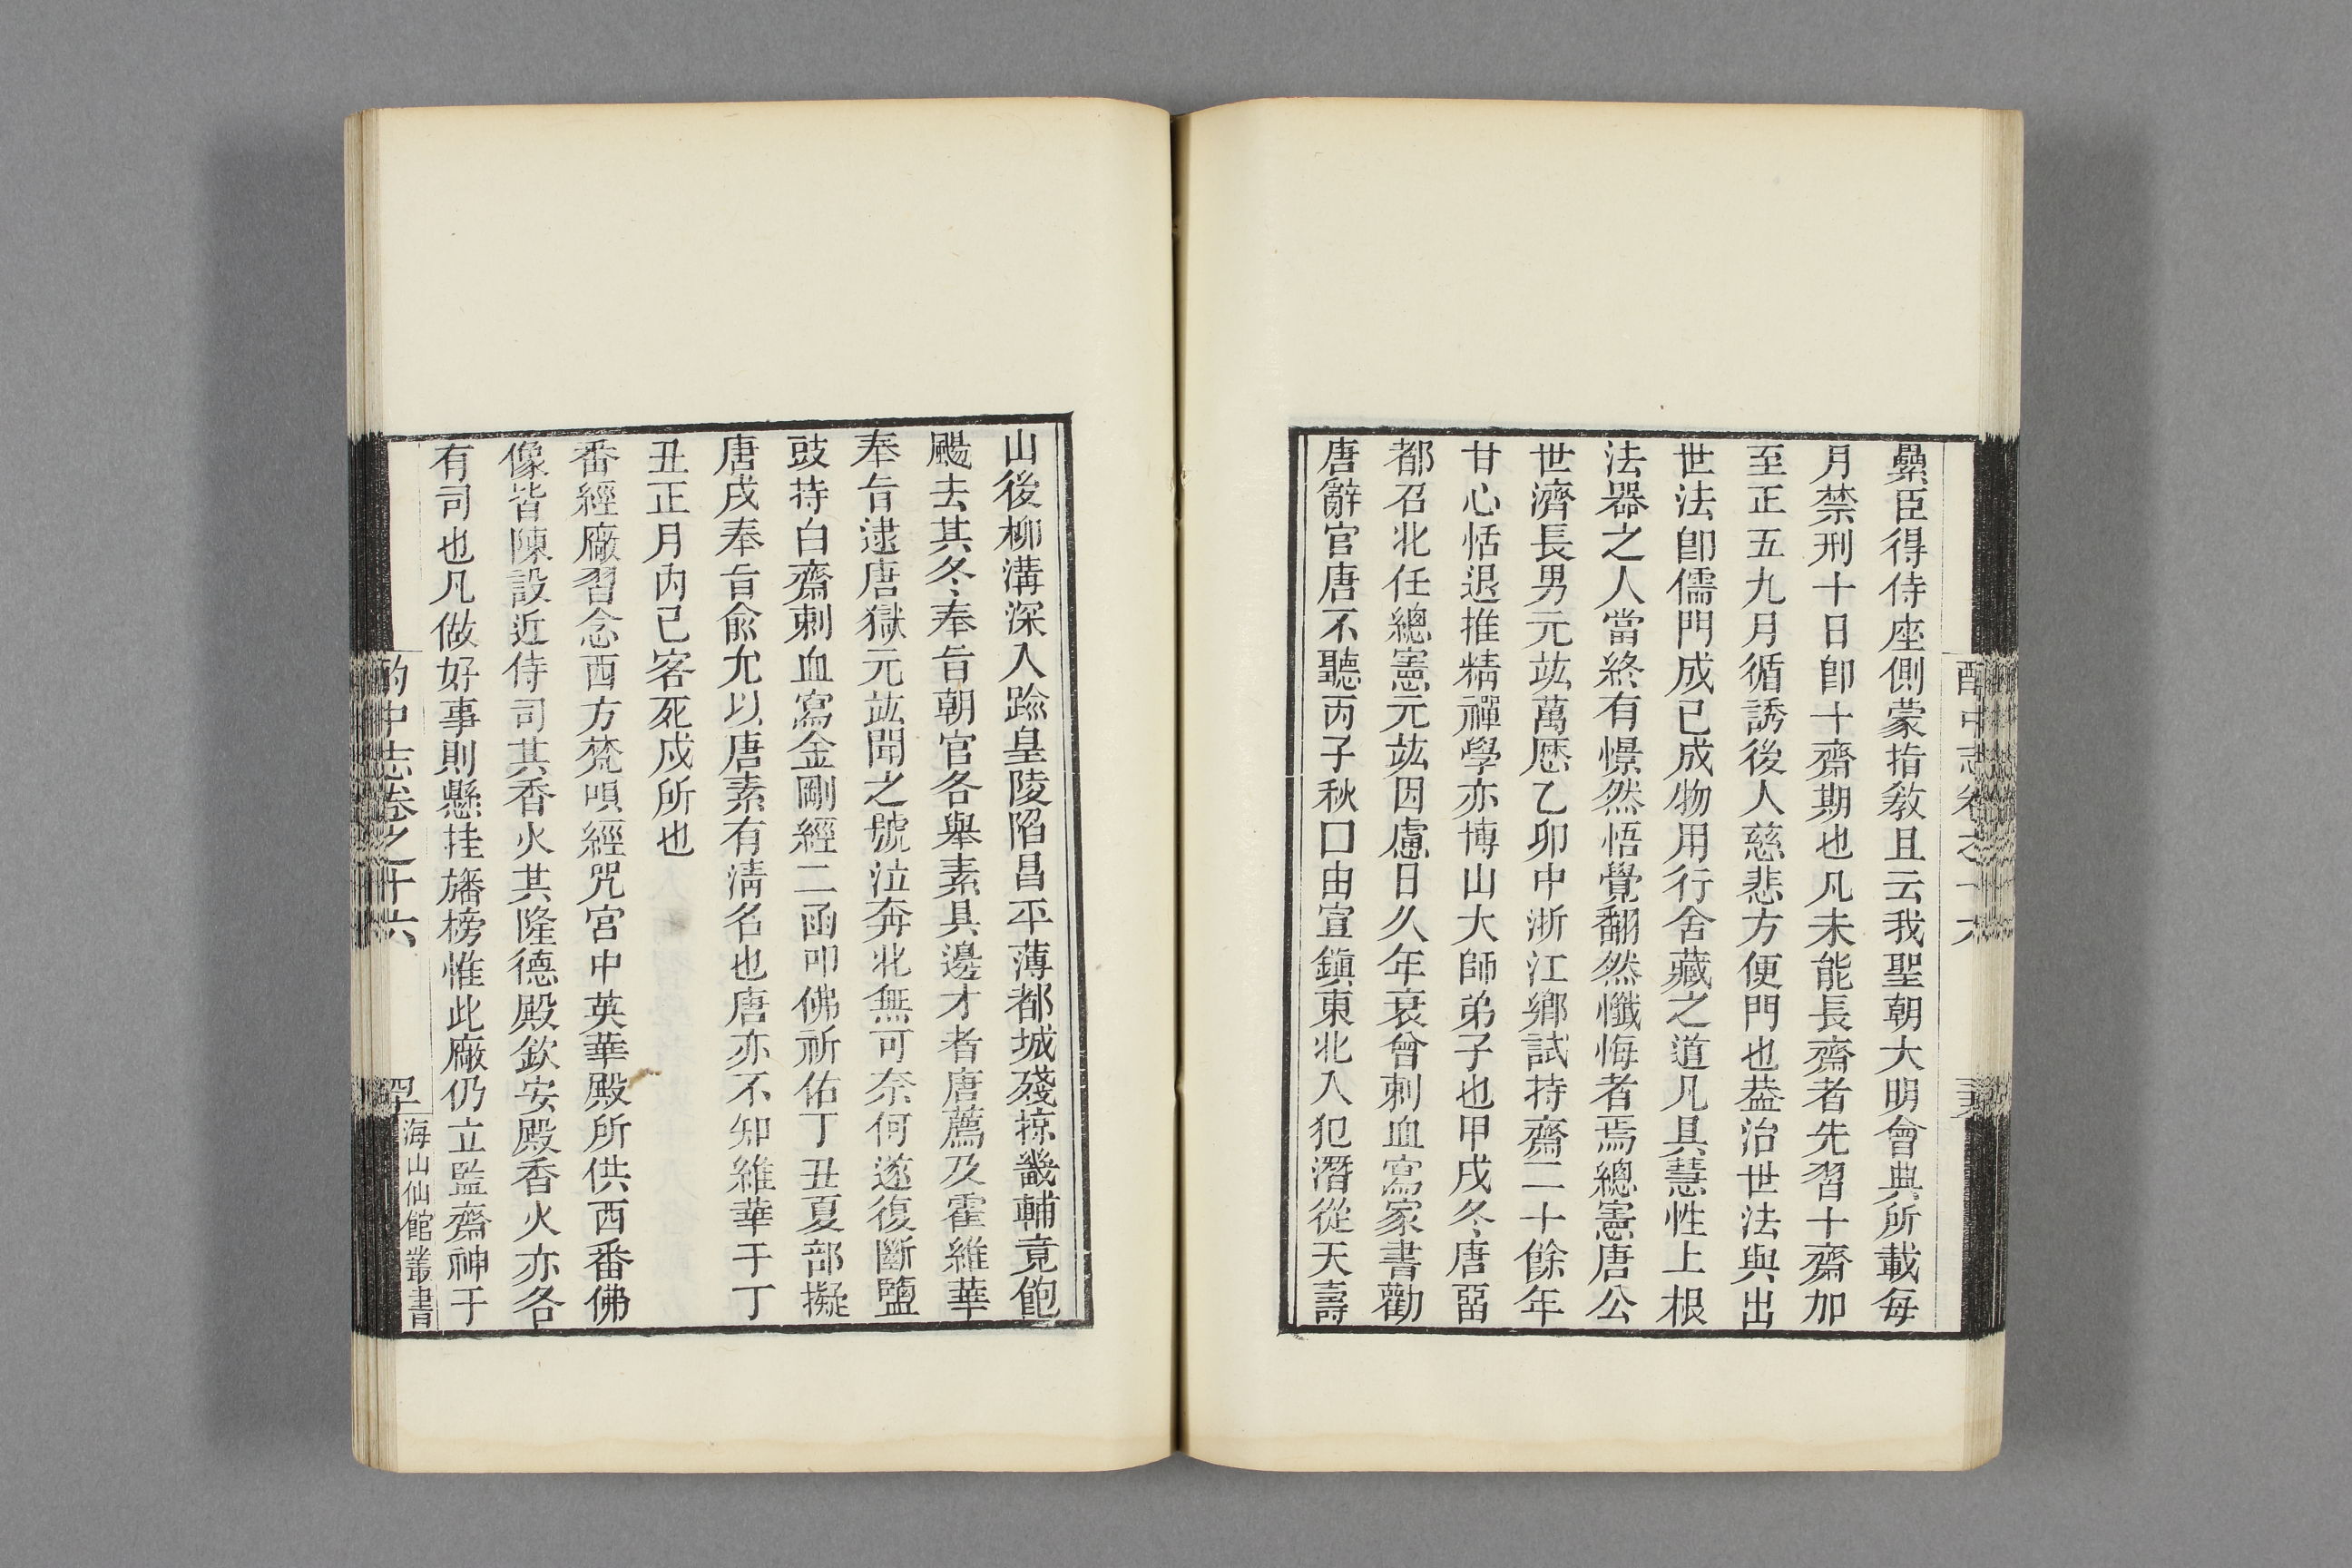 纍臣得侍座側蒙指教且云我聖朝大明會典所載每
月禁刑十日卽十齋期也凡未能長齋者先習十齋加
至正五九月循誘後人慈悲方便門也葢治世法與出
世法卽儒門成已成物用行舍藏之道凡具慧性上根
法器之人當終有憬然悟覺翻然懺悔者焉總憲唐公
世濟長男元竑萬厯乙卯中浙江鄉試持齋二十餘年
甘心恬退推精禪學亦博山大師弟子也甲戌冬唐畱
都召北任總憲元竑因慮日久年衰曾刺血寫家書勸
唐辭官唐不聽丙子秋口由宣鎮東北入犯潛從天壽
山後柳溝深入踰皇陵陷昌平薄都城殘掠畿輔竟飽
颺去其冬奉旨朝官各舉素具邊才者唐薦及霍維華
奉旨逮唐獄元竑聞之號泣奔北無可奈何遂復斷鹽
豉持白齋刺血寫金剛經二函叩佛祈佑丁丑夏部擬
唐戍奉旨兪允以唐素有清名也唐亦不知維華于丁
丑正月內已客死戍所也
番經廠習念西方梵唄經咒宮中英華殿所供西番佛
像皆陳設近侍司其香火其隆德殿欽安殿香火亦各
有司也凡做好事則懸挂旛榜惟此廠仍立監齋神于
酌中志卷之十六
海山仙館叢書